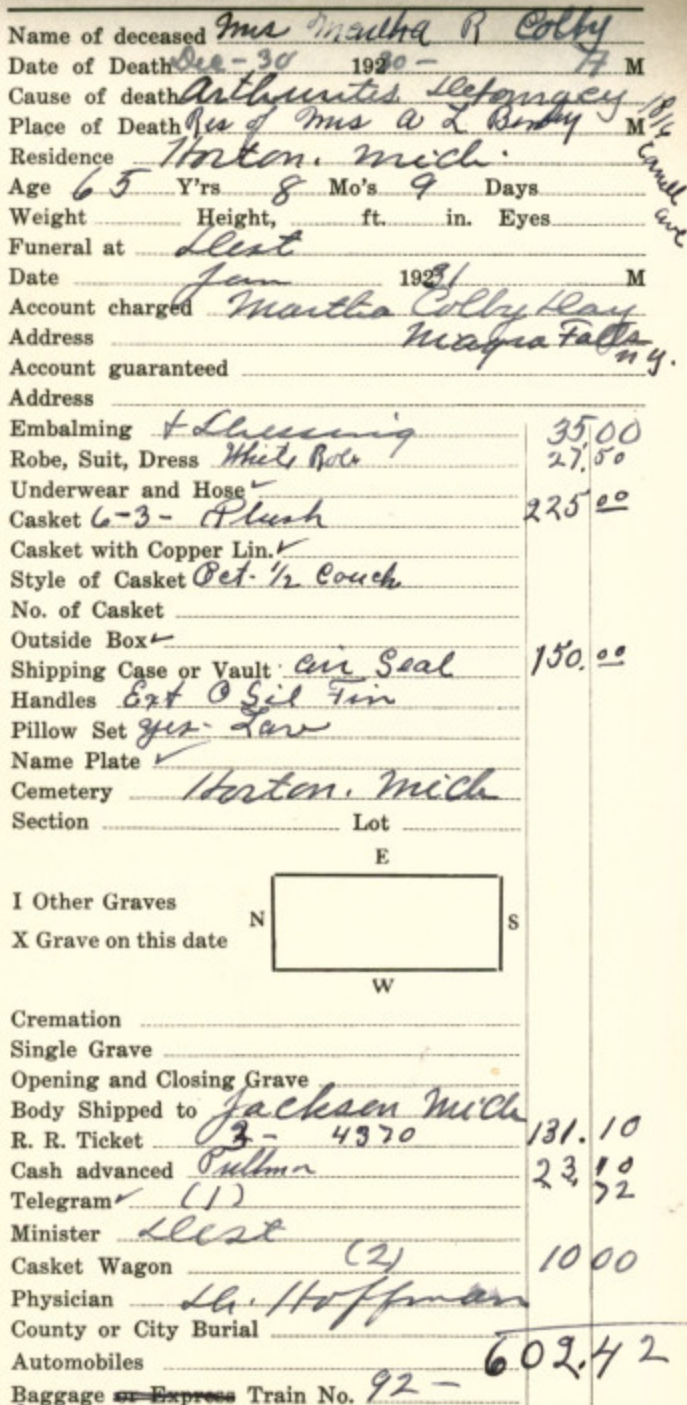 Name of deceased Mrs Martha R Colby
Date of Death Dec - 30 1930 - M
Cause of death Arthurites
Place of Death Res of Mrs A L M 1816
Residence Horton. Mich. ave
Age 65 Y'rs 8 Mo's 9 Days
Weight Height, ft. in. Eyes
Funeral at Dest
Date Jan 1931 M
Account charged Martha Colby Day
Address Niagra Falls
N y.
Account guaranteed
Address
Embalming + Dressing 35 00
Robe, Suit, Dress White Robe 27.50
Underwear and Hose ✓
Casket 6-3- Plush 225 00
Casket with Copper Lin. ✓
Style of Casket Oct- 1/2 Couch
No. of Casket
Outside Box ✓
Shipping Case or Vault air Seal 150.00
Handles Ext O Sil Fin
Pillow Set yes- Lav
Name Plate ✓
Cemetery Horton. Mich
Section Lot
E
I Other Graves
N S
X Grave on this date
W
Cremation
Single Grave
Opening and Closing Grave
Body Shipped to Jackson Mich
R. R. Ticket 3 - 4370 131.10
Cash advanced Pullman 23.10
Telegram ✓ (1) 72
Minister Dest
Casket Wagon (2) 10 00
Physician Dr. Hoffman
County or City Burial
Automobiles 602.42
Baggage or Express Train No. 92 -